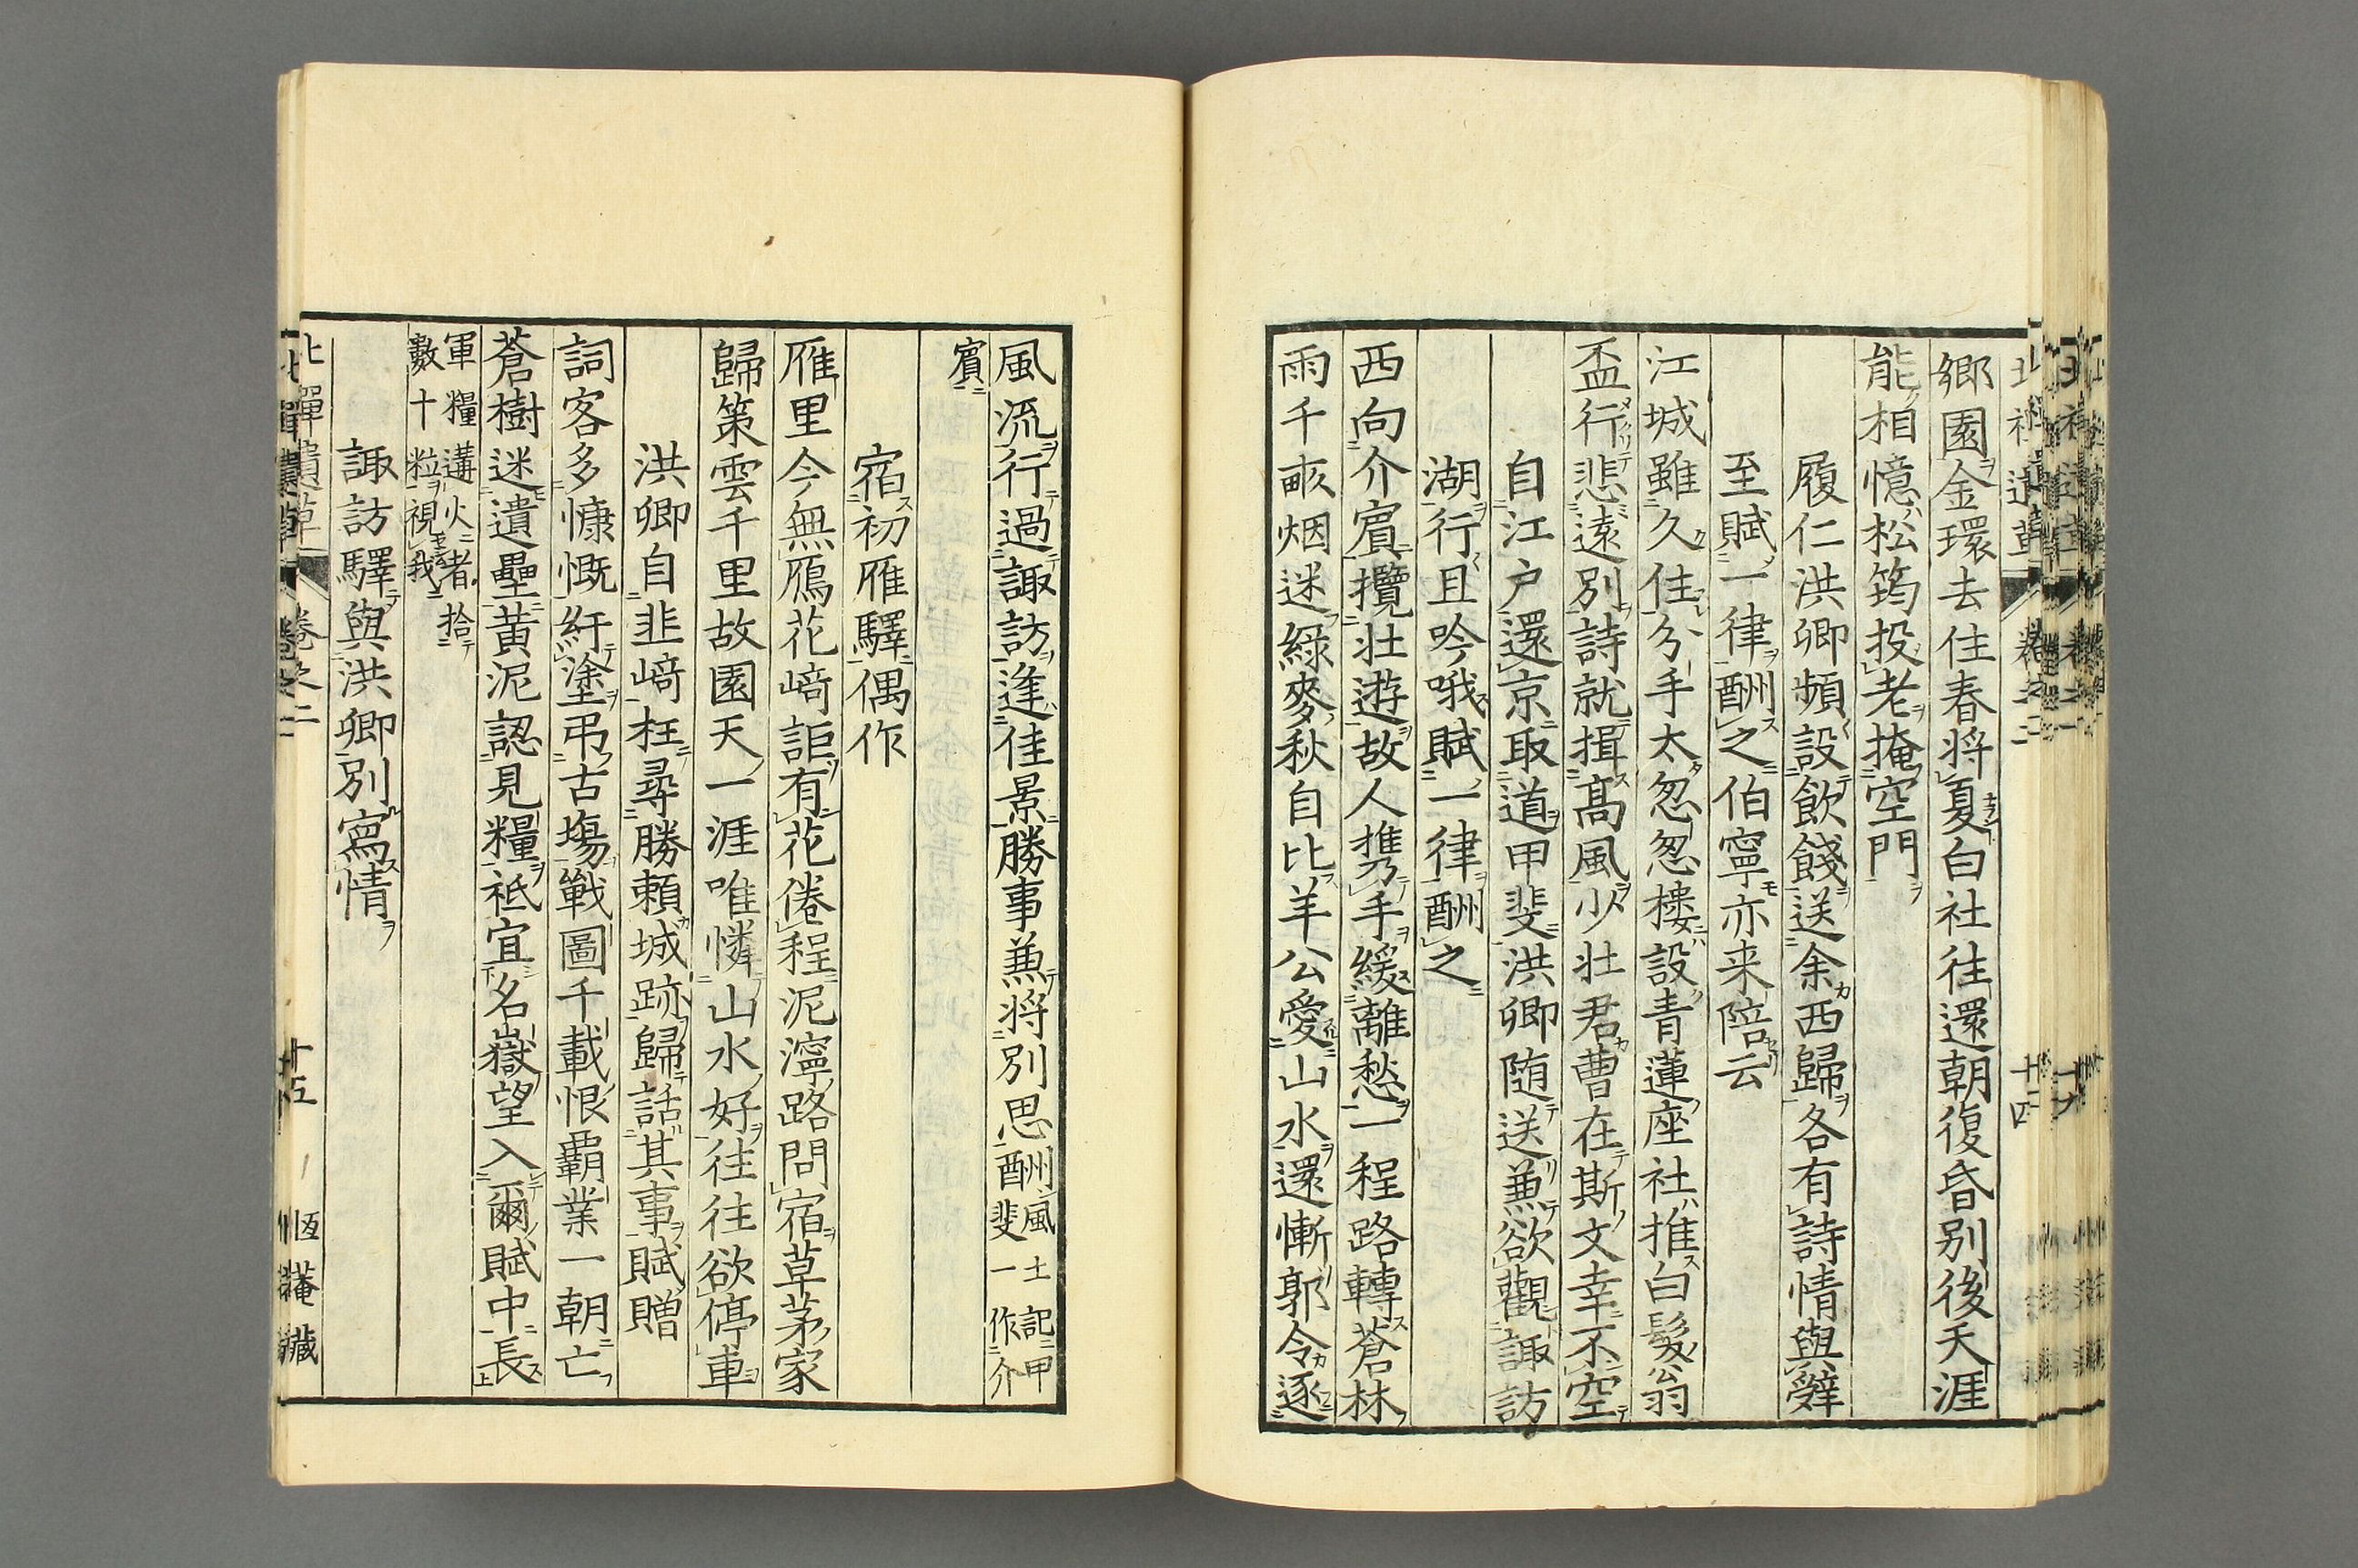 鄉園金環去住春将夏白社往還朝復昏別後天涯
能相憶松筠投老掩空門
履仁洪卿頻設飲餞送余西歸各有詩情與辤
至賦一律酬之伯寧亦来陪云
江城雖久住分手太怱怱樓設青蓮座社推白髮翁
盃行悲遠別詩就揖髙風少壮君曹在斯文幸不空
自江户還京取道甲斐洪卿随送兼欲觀諏訪
湖行且吟哦賦一律酬之
西向介賔攬壮遊故人携手緩離愁一程路轉蒼林
雨千畝烟迷綠麥秋自比羊公愛山水還慚郭令逐
風流行過諏訪逢佳景勝事兼将別思酬風土記甲斐一作介
賔
宿初雁驛偶作
雁里今無鴈花﨑詎有花倦程泥濘路問宿草茅家
歸策雲千里故園天一涯唯憐山水好往往欲停車
洪卿自韭﨑枉尋勝頼城跡歸話其事賦贈
詞客多慷慨紆塗弔古塲戰圖千載恨覇業一朝亡
蒼樹迷遺壘黄泥認見糧祗宜名嶽望入爾賦中長
軍糧遘火者拾
數十粒視我
諏訪驛與洪卿別寫情
北禪遺草 卷之二 十五 恆菴藏